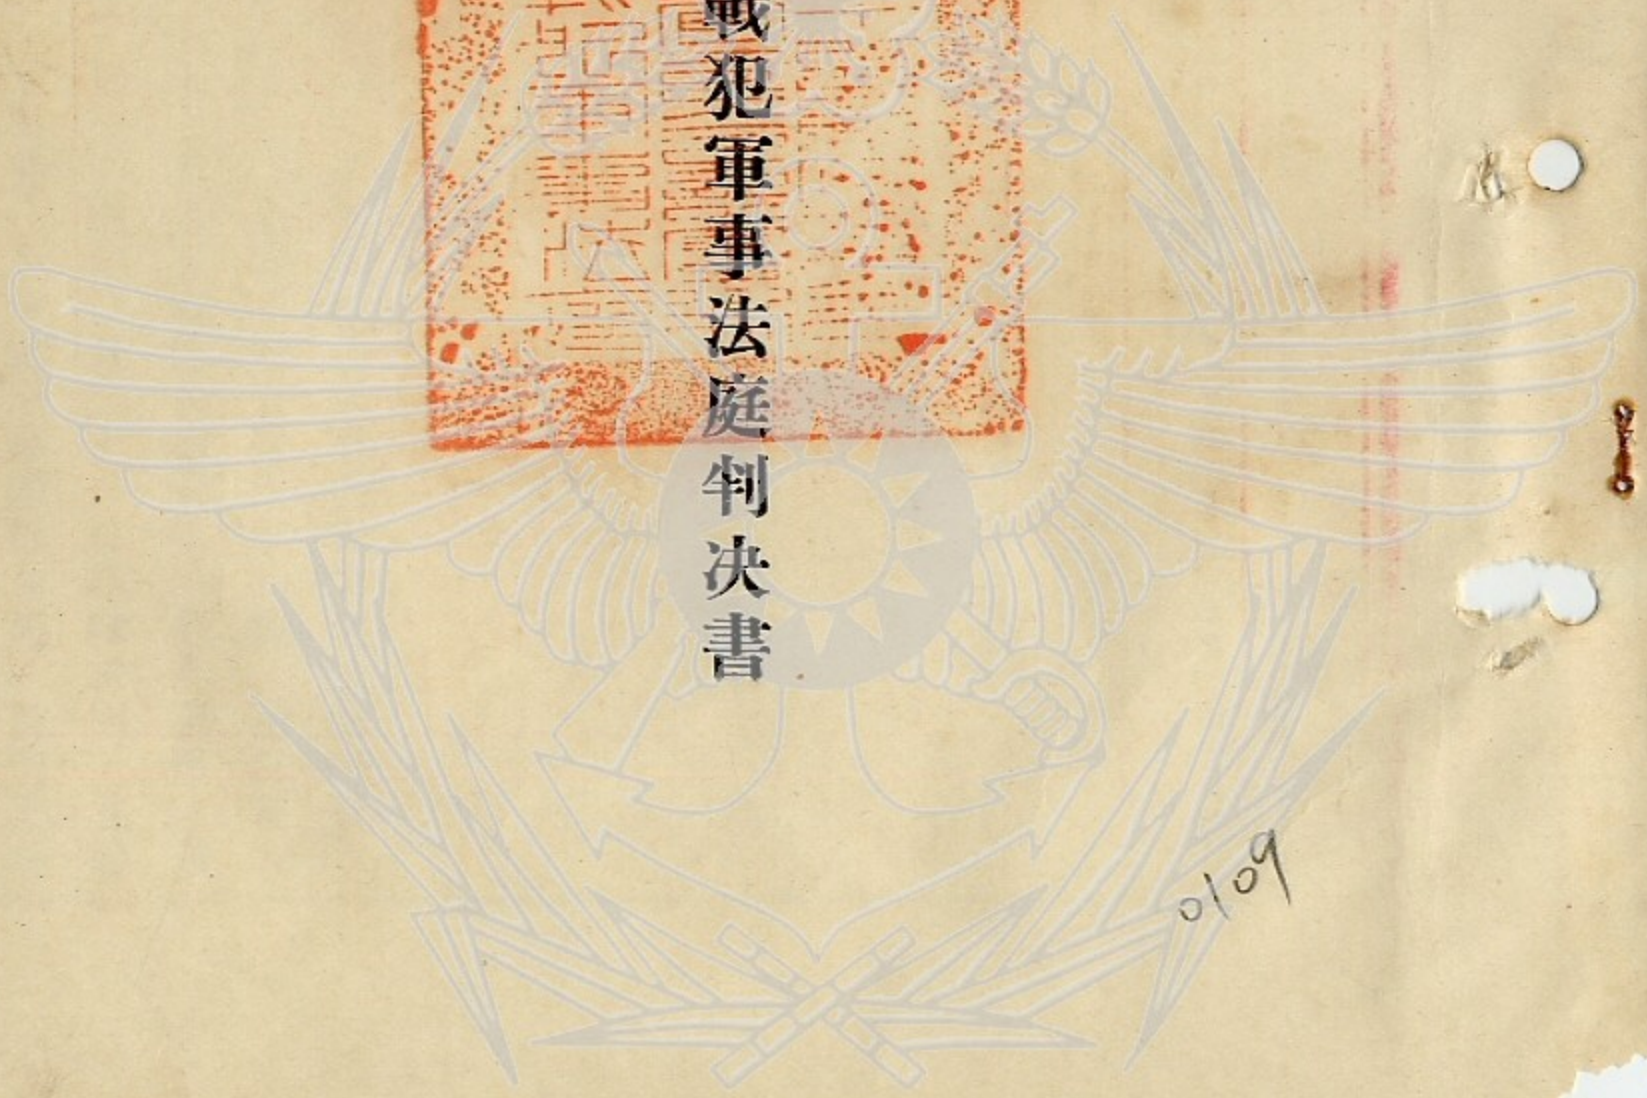 戰犯軍事法庭判決書
0109